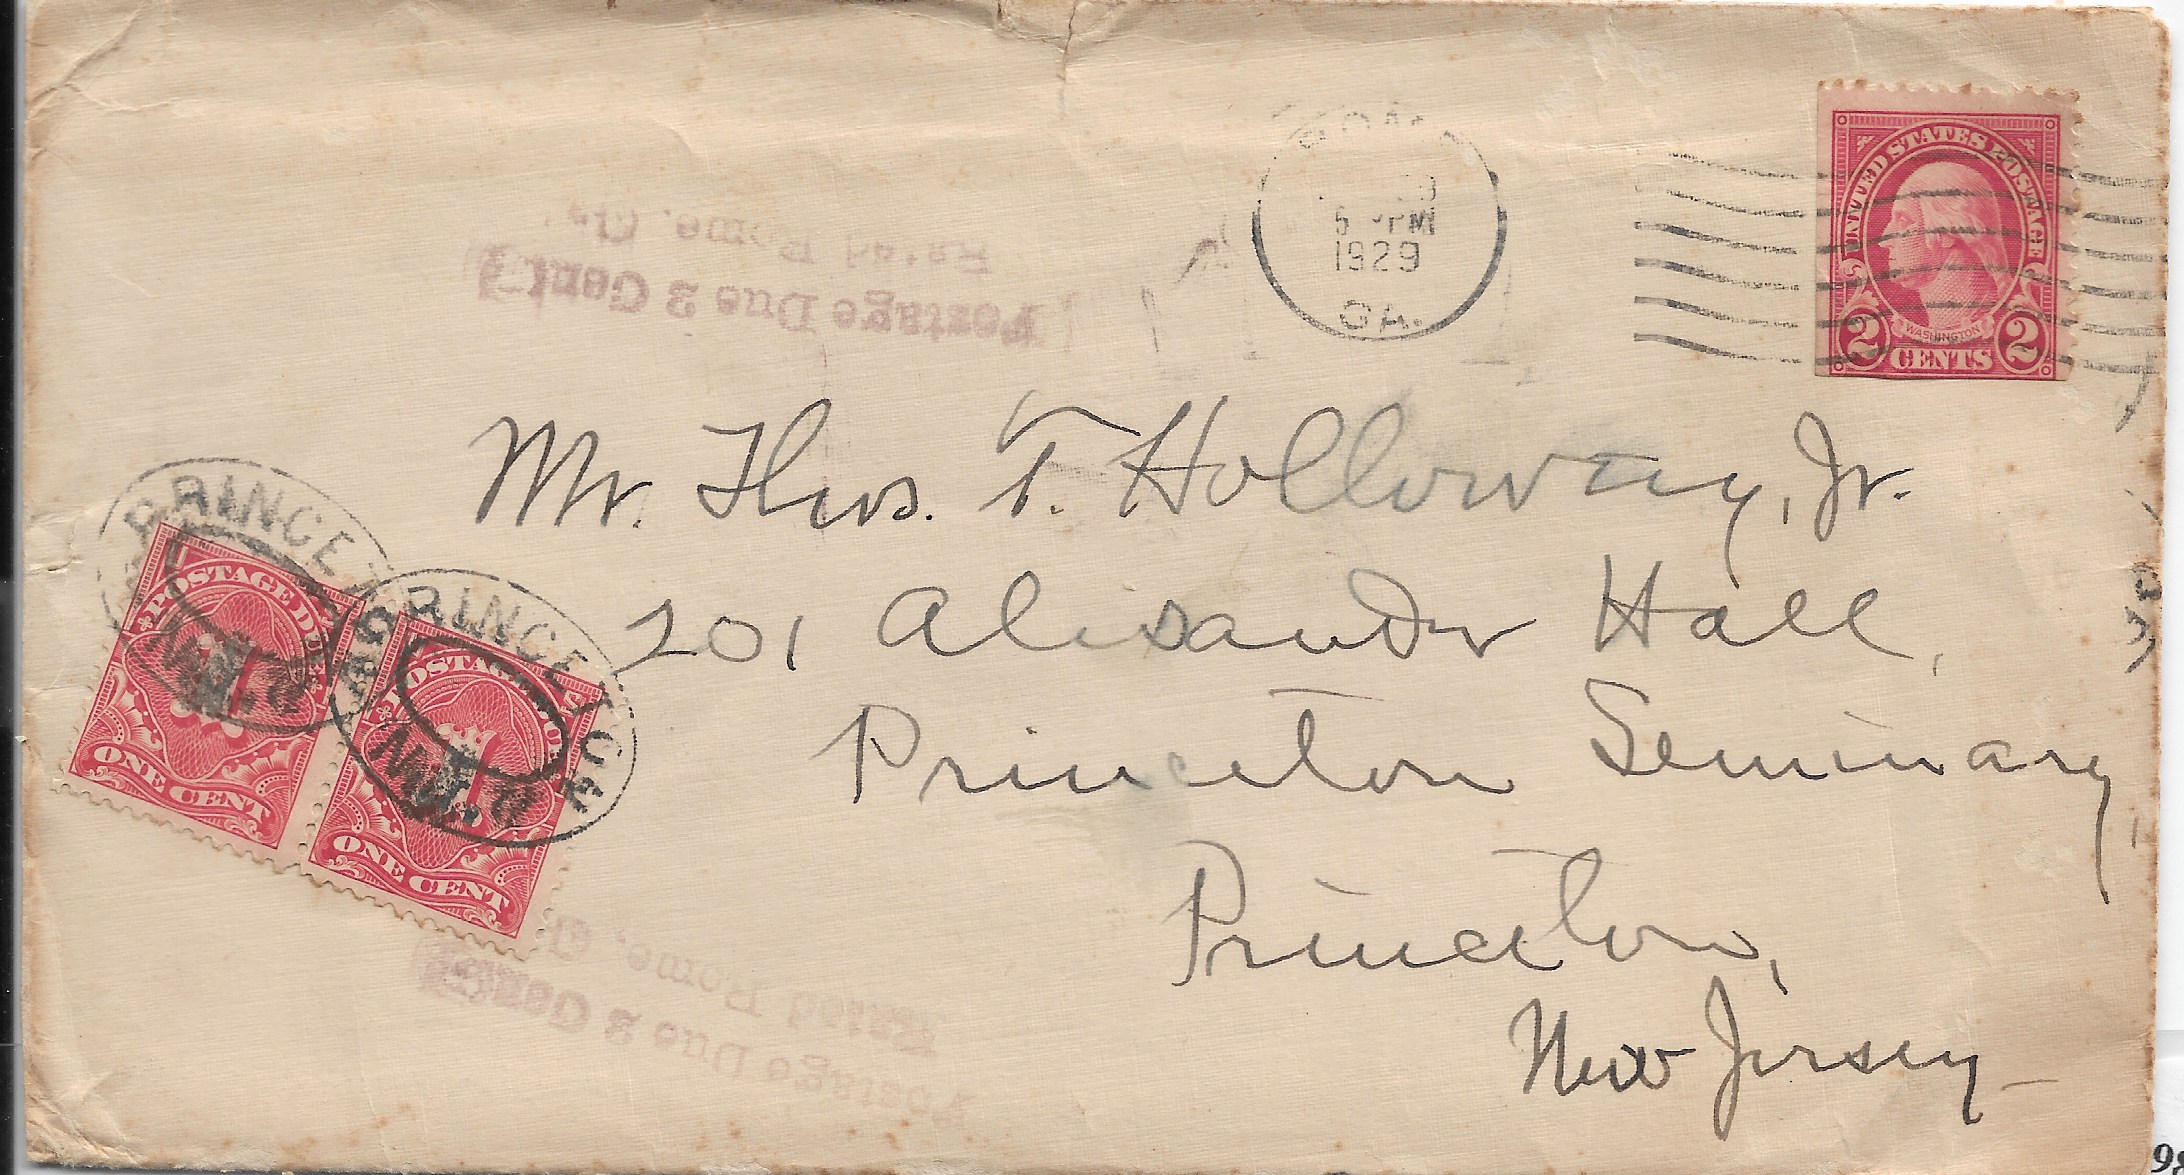 ROME
5 PM
1929
GA.
UNITED STATES POSTAGE
WASHINGTON
2 CENTS 2
Postage Due 2 Cents
Rated Rome, Ga.
Mr. Thos. T. Holloway, Jr.
201 Alexander Hall,
Princeton Seminary,
Princeton,
New Jersey
PRINCETON
POSTAGE DUE
1
ONE CENT
PRINCETON
POSTAGE DUE
1
ONE CENT
Postage Due 2 Cents
Rated Rome, G